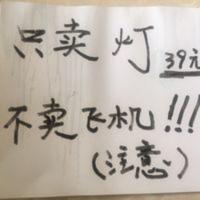 只卖灯 39元
不卖飞机!!!
(注意)